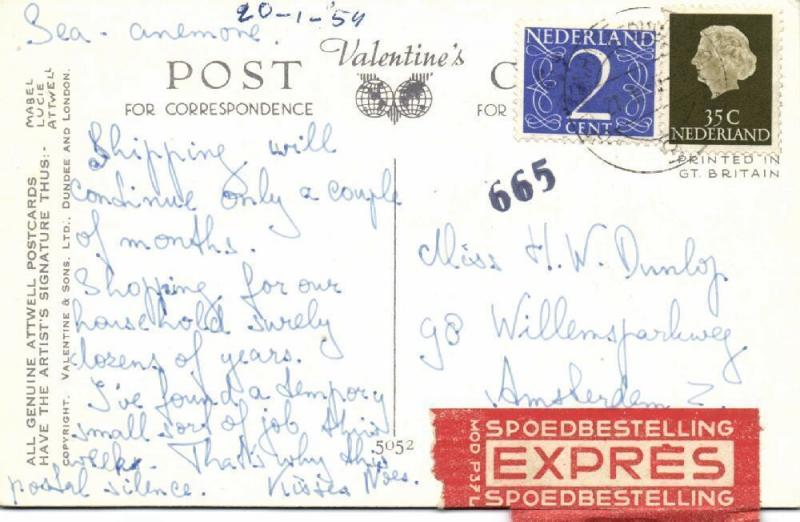 20-1-'54
Sea - anemone.
Valentine's
POST
C
FOR CORRESPONDENCE
FOR
NEDERLAND
2
CENT
35 C
NEDERLAND
PRINTED IN
GT. BRITAIN
665
Shipping will
continue only a couple
of months.
Shopping for our
household surely
dozens of years.
I've found a tempory
small sort of job this
week. That's why this
postal silence. Kisses Noes.
Miss H.W. Dunlop
98 Willemsparkweg
Amsterdam Z.
5052
SPOEDBESTELLING
EXPRÈS
SPOEDBESTELLING
MOD P37L
ALL GENUINE ATTWELL POSTCARDS
HAVE THE ARTIST'S SIGNATURE THUS:-
MABEL
LUCIE
ATTWELL
COPYRIGHT. VALENTINE & SONS. LTD., DUNDEE AND LONDON.